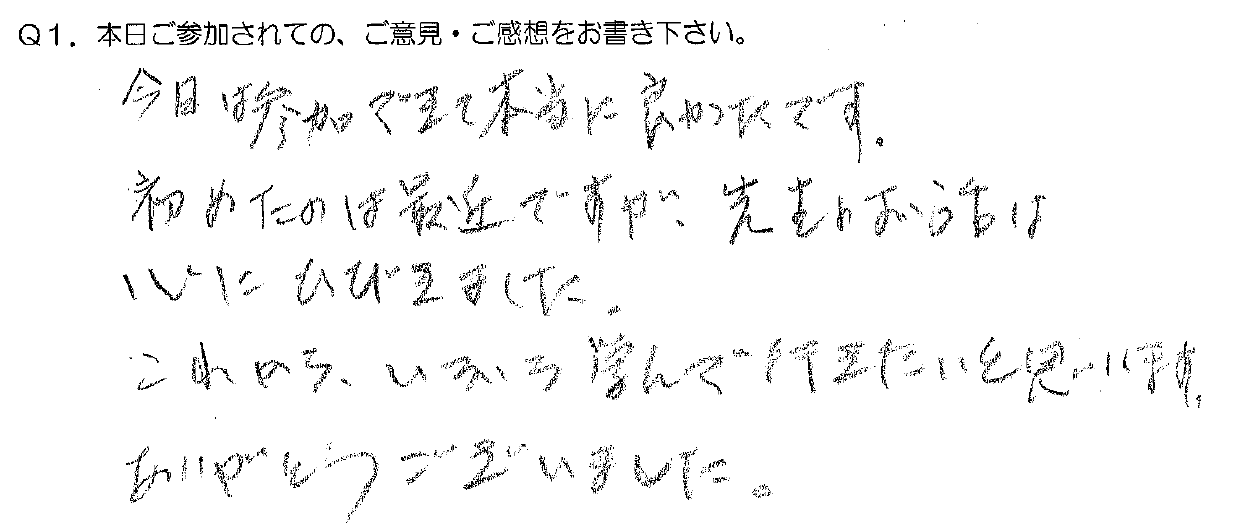 Q1. 本日ご参加されての、ご意見・ご感想をお書き下さい。
今日は参加できて本当に良かったです。
初めたのは最近ですが、先生のお話は
心にひびきました。
これから、いろいろ学んで行きたいと思います。
ありがとうございました。